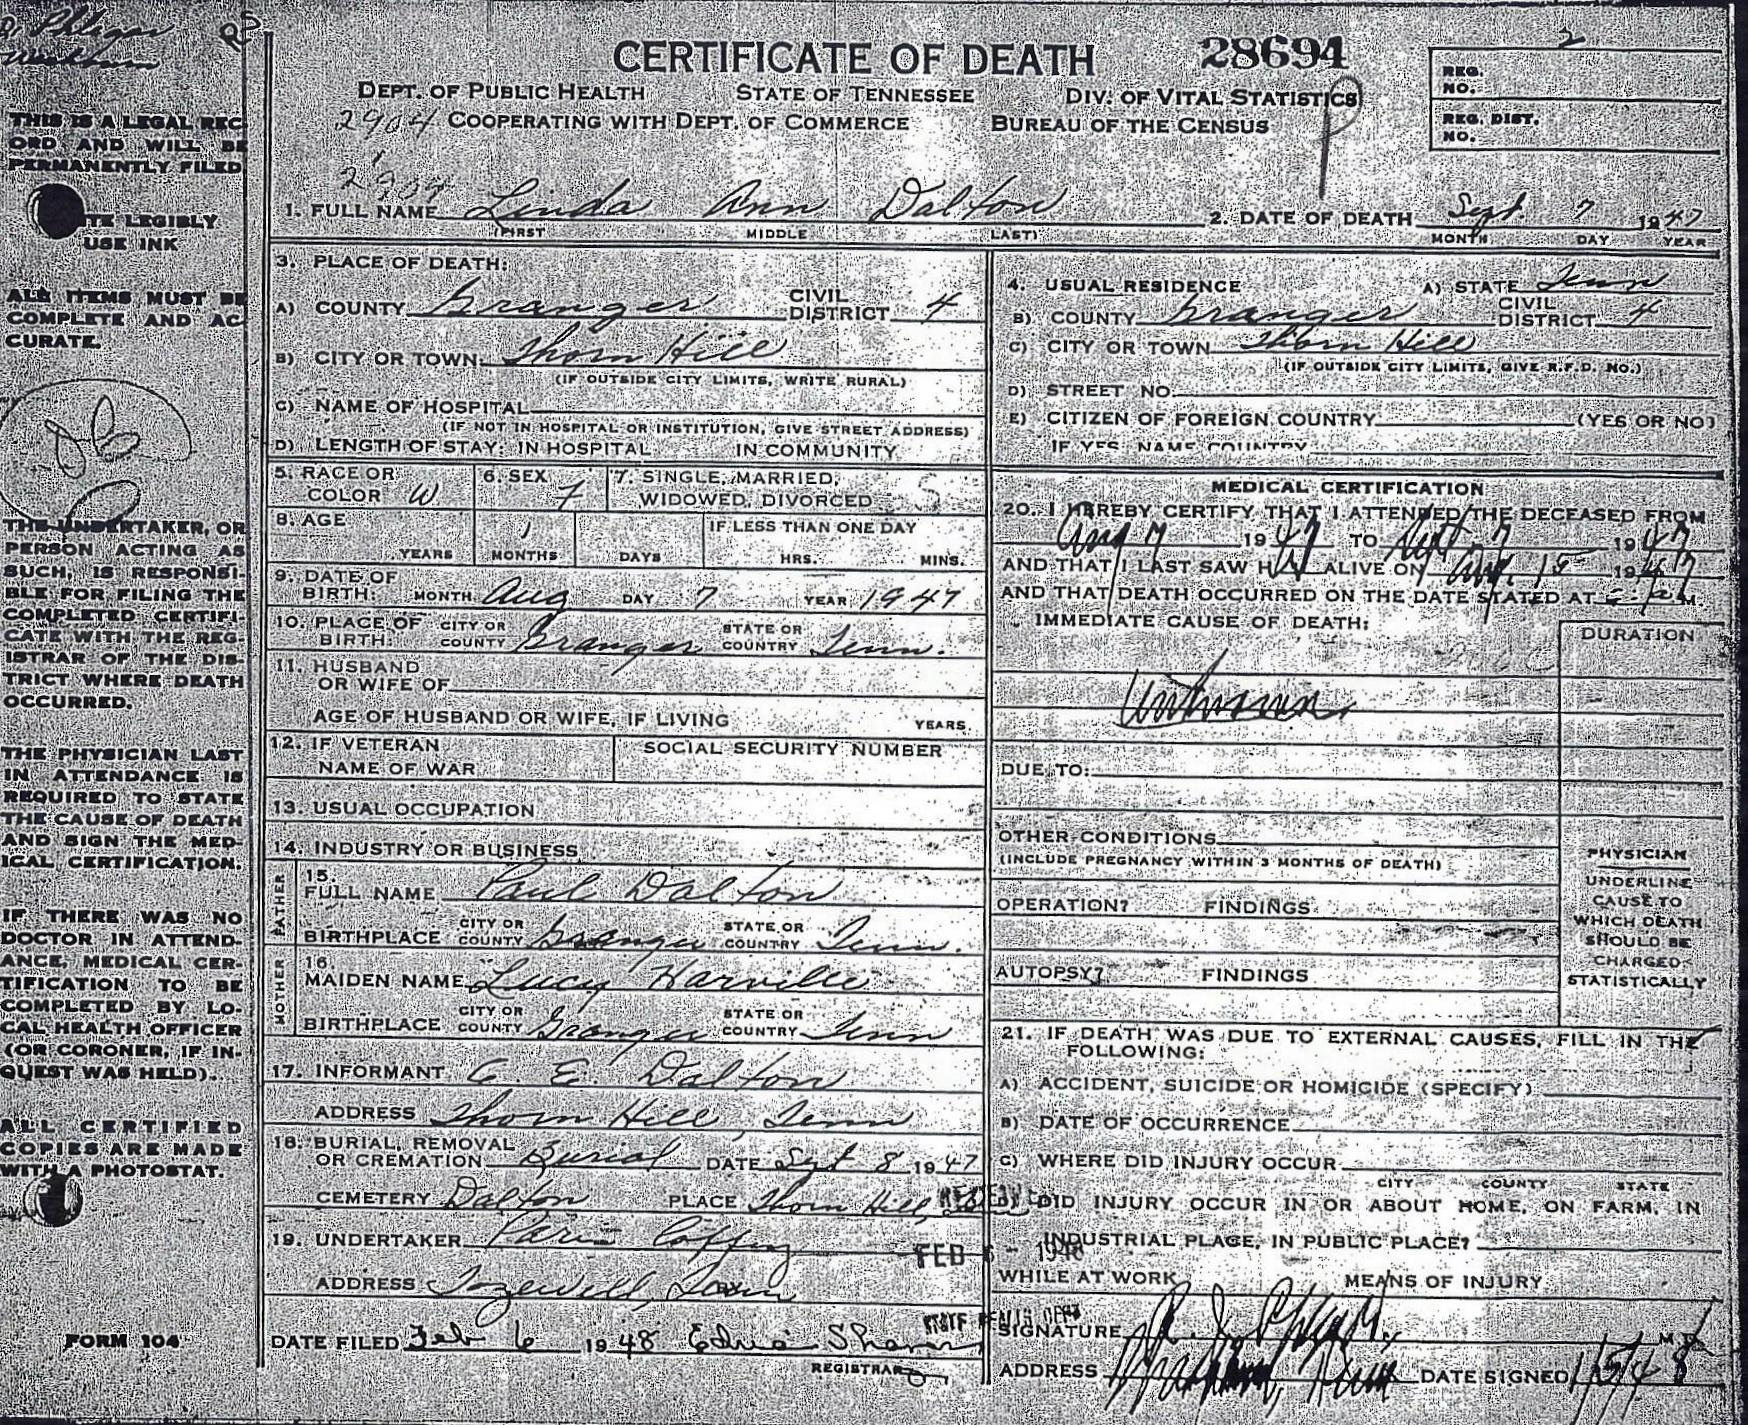 CERTIFICATE OF DEATH 28694
DEPT. OF PUBLIC HEALTH STATE OF TENNESSEE DIV. OF VITAL STATISTICS
2904 COOPERATING WITH DEPT. OF COMMERCE BUREAU OF THE CENSUS
REG. NO. 2
REG. DIST. NO.
THIS IS A LEGAL REC-
ORD AND WILL BE
PERMANENTLY FILED
LEGIBLY
USE INK
ALL ITEMS MUST BE
COMPLETE AND AC-
CURATE.
THE UNDERTAKER, OR
PERSON ACTING AS
SUCH, IS RESPONSI-
BLE FOR FILING THE
COMPLETED CERTIFI-
CATE WITH THE REG-
ISTRAR OF THE DIS-
TRICT WHERE DEATH
OCCURRED.
THE PHYSICIAN LAST
IN ATTENDANCE IS
REQUIRED TO STATE
THE CAUSE OF DEATH
AND SIGN THE MED-
ICAL CERTIFICATION.
IF THERE WAS NO
DOCTOR IN ATTEND-
ANCE, MEDICAL CER-
TIFICATION TO BE
COMPLETED BY LO-
CAL HEALTH OFFICER
(OR CORONER, IF IN-
QUEST WAS HELD).
ALL CERTIFIED
COPIES ARE MADE
WITH A PHOTOSTAT.
FORM 104
2904
1. FULL NAME Linda Ann Dalton 2. DATE OF DEATH Sept 7 1947
(FIRST MIDDLE LAST) MONTH DAY YEAR
3. PLACE OF DEATH:
A) COUNTY Granger CIVIL DISTRICT 4
B) CITY OR TOWN Thorn Hill
(IF OUTSIDE CITY LIMITS, WRITE RURAL)
C) NAME OF HOSPITAL
(IF NOT IN HOSPITAL OR INSTITUTION, GIVE STREET ADDRESS)
D) LENGTH OF STAY: IN HOSPITAL IN COMMUNITY
4. USUAL RESIDENCE A) STATE Tenn
B) COUNTY Granger CIVIL DISTRICT 4
C) CITY OR TOWN Thorn Hill
(IF OUTSIDE CITY LIMITS, GIVE R.F.D. NO.)
D) STREET NO.
E) CITIZEN OF FOREIGN COUNTRY (YES OR NO)
IF YES, NAME COUNTRY
5. RACE OR COLOR W 6. SEX F 7. SINGLE, MARRIED, WIDOWED, DIVORCED S
8. AGE 1 IF LESS THAN ONE DAY
YEARS MONTHS DAYS HRS. MINS.
9. DATE OF BIRTH: MONTH Aug DAY 7 YEAR 1947
10. PLACE OF BIRTH: CITY OR COUNTY Granger STATE OR COUNTRY Tenn.
11. HUSBAND OR WIFE OF
AGE OF HUSBAND OR WIFE, IF LIVING YEARS
12. IF VETERAN NAME OF WAR SOCIAL SECURITY NUMBER
13. USUAL OCCUPATION
14. INDUSTRY OR BUSINESS
FATHER
15. FULL NAME Paul Dalton
BIRTHPLACE CITY OR COUNTY Granger STATE OR COUNTRY Tenn.
MOTHER
16. MAIDEN NAME Lucy Harville
BIRTHPLACE CITY OR COUNTY Granger STATE OR COUNTRY Tenn
17. INFORMANT C. E. Dalton
ADDRESS Thorn Hill, Tenn
18. BURIAL, REMOVAL OR CREMATION Burial DATE Sept 8 1947
CEMETERY Dalton PLACE Thorn Hill,
19. UNDERTAKER
FEB 1948
ADDRESS Tazewell, Tenn
DATE FILED Feb 6 1948 Edna
REGISTRAR
MEDICAL CERTIFICATION
20. I HEREBY CERTIFY THAT I ATTENDED THE DECEASED FROM
Aug 7 1947 TO Sept 7 1947
AND THAT I LAST SAW HER ALIVE ON Aug. 15 1947
AND THAT DEATH OCCURRED ON THE DATE STATED AT M.
IMMEDIATE CAUSE OF DEATH: DURATION
Unknown
DUE TO:
OTHER CONDITIONS
(INCLUDE PREGNANCY WITHIN 3 MONTHS OF DEATH)
OPERATION? FINDINGS
AUTOPSY? FINDINGS
PHYSICIAN
UNDERLINE
CAUSE TO
WHICH DEATH
SHOULD BE
CHARGED
STATISTICALLY
21. IF DEATH WAS DUE TO EXTERNAL CAUSES, FILL IN THE
FOLLOWING:
A) ACCIDENT, SUICIDE OR HOMICIDE (SPECIFY)
B) DATE OF OCCURRENCE
C) WHERE DID INJURY OCCUR
CITY COUNTY STATE
D) DID INJURY OCCUR IN OR ABOUT HOME, ON FARM, IN
INDUSTRIAL PLACE, IN PUBLIC PLACE?
WHILE AT WORK MEANS OF INJURY
SIGNATURE M.D.
ADDRESS DATE SIGNED 1/5/48